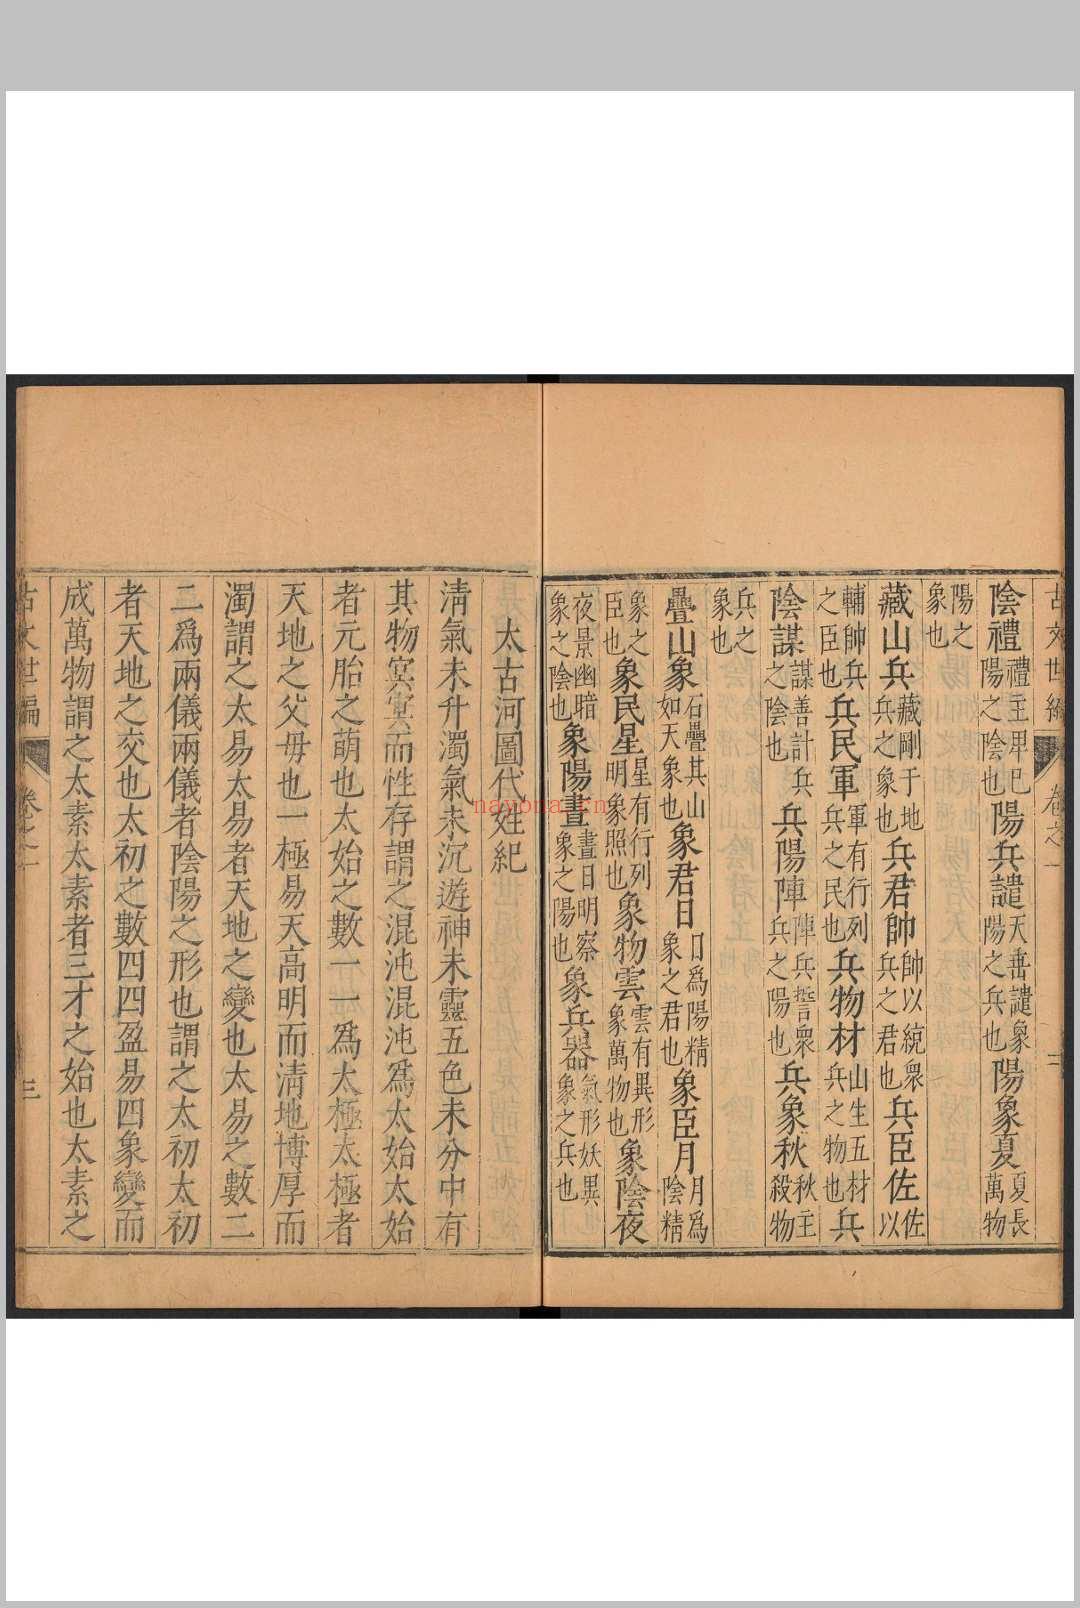 古文世編 卷之一 二
陰禮禮主甲巳陽之陰也陽兵譴天垂譴象陽之兵也陽象夏夏長萬物
陽之象也
藏山兵藏剛于地兵之象也兵君帥帥以統衆兵之君也兵臣佐佐以
輔帥兵之臣也兵民軍軍有行列兵之民也兵物材山生五材兵之物也兵
陰謀謀善計兵之陰也兵陽陣陣兵誓衆兵之陽也兵象秋秋主殺物
兵之象也
疊山象石疊其山如天象也象君日日爲陽精象之君也象臣月月爲陰精
象之臣也象民星星有行列明象照也象物雲雲有異形象萬物也象陰夜
夜景幽暗象之陰也象陽晝晝日明察象之陽也象兵器氣形妖異象之兵也
太古河圖代姓紀
清氣未升濁氣未沉遊神未靈五色未分中有
其物冥冥而性存謂之混沌混沌爲太始太始
者元胎之萌也太始之數一一爲太極太極者
天地之父母也一極易天高明而清地博厚而
濁謂之太易太易者天地之變也太易之數二
二爲兩儀兩儀者陰陽之形也謂之太初太初
者天地之交也太初之數四四盈易四象變而
成萬物謂之太素太素者三才之始也太素之
古文世編 卷之一 三
nayona.cn